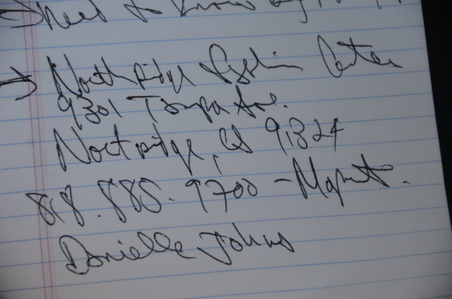 → Northridge Fashion Center
9301 Tampa Ave.
Northridge, CA 91324
818.885.9700 -
Danielle Johns